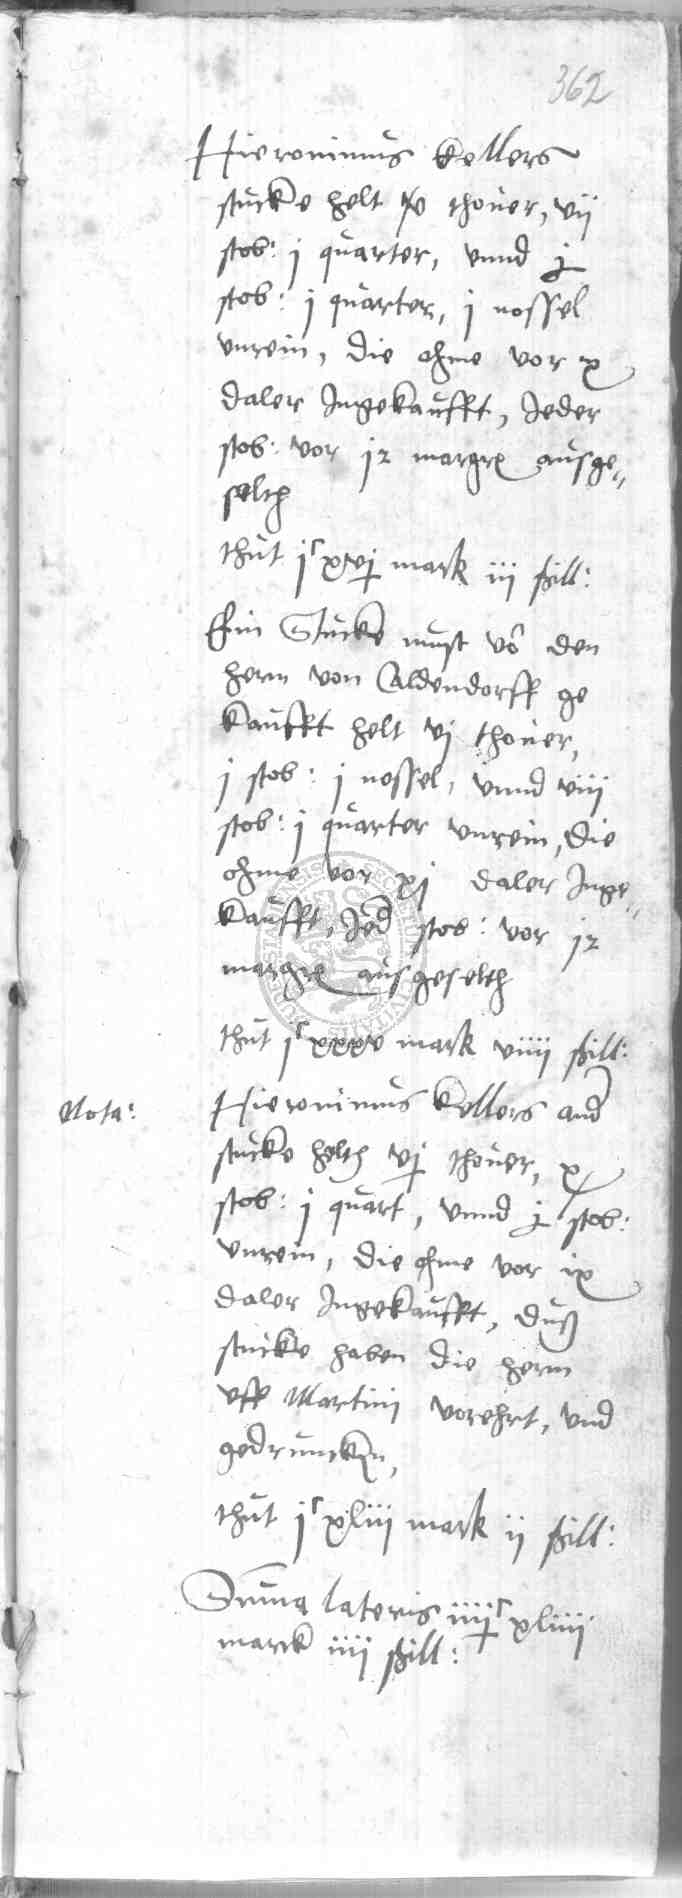 362
Hieronimus Kellers
stucke helt v thoner, vij
stob: j quarter, vnnd j
stob: j quarter, j nossel
vnrein, die ohme vor ix
daler Ingekaufft, Jeder
stob: vor jz margrʒ ausge„
selth
thut jᶜ xvj mark iij ßill:
Ein Stucke must vō den
hern von Aldendorff ge
kaufft helt vj thoner,
j stob: j nossel, vnnd viij
stob: j quarter vnrein, die
ohme vor xj daler Inge„
kaufft, Jed stob: vor jz
margrʒ ausgeselth
thut jᶜ xxxv mark viiij ßill:
Nota: Hieronimus Kellers and
stucke helth vj thoner, x
stob: j quart, vnnd j stob:
vnrein, die ohme vor ix
daler Ingekaufft, duß
stucke haben die hern
vff Martini vorehrt, vnd
gedruncken,
thut jᶜ xliij mark ij ßill:
Suma lateris iiijᶜ xliiij
marck iiij ßill: